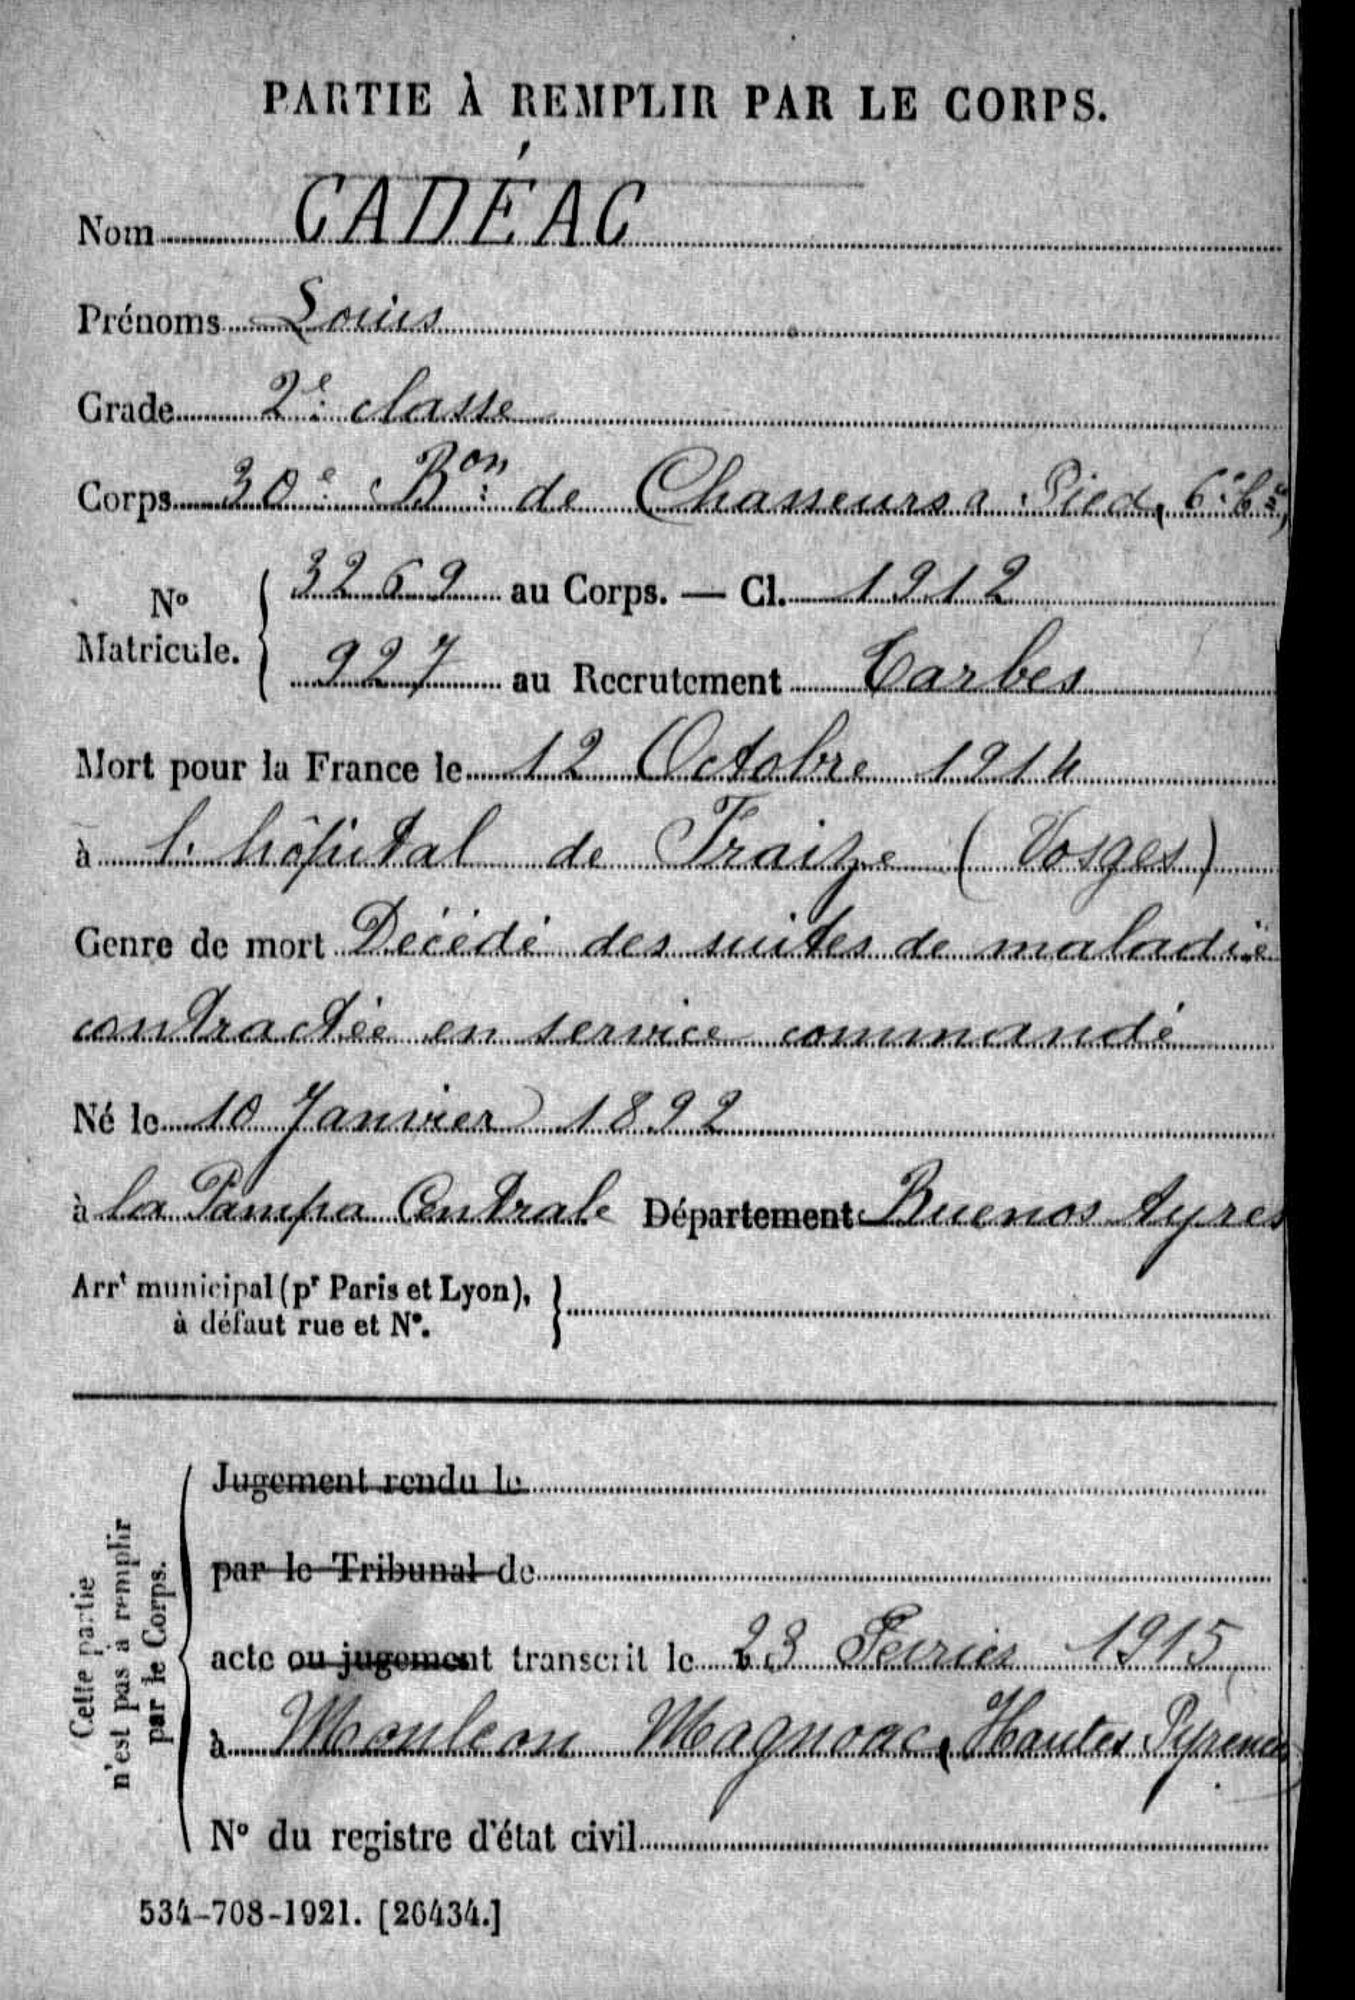 PARTIE À REMPLIR PAR LE CORPS.
Nom CADÉAC
Prénoms Louis
Grade 2e classe
Corps 30e Bon de Chasseurs a Pied, 6e Cie
No Matricule. { 3269 au Corps. — Cl. 1912
927 au Recrutement Tarbes
Mort pour la France le 12 Octobre 1914
à l'hôpital de Fraize (Vosges)
Genre de mort Décédé des suites de maladie
contractée en service commandé
Né le 10 Janvier 1892
à la Pampa Centrale Département Buenos Ayres
Arrt municipal (pr Paris et Lyon), }
à défaut rue et No.
Cette partie
n'est pas à remplir
par le Corps.
Jugement rendu le
par le Tribunal de
acte ou jugement transcrit le 23 Fevrier 1915
à Monleon Magnoac, Hautes Pyrenées
No du registre d'état civil
534-708-1921. [26434.]